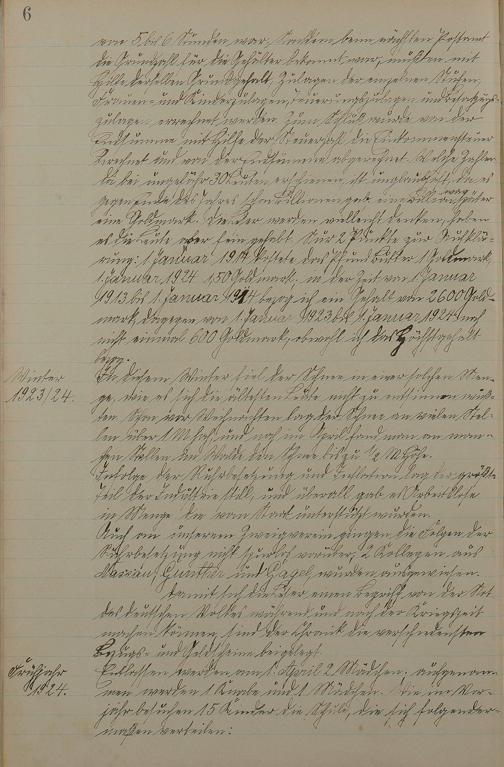 6
von 5 bis 6 Stunden war. Nachdem beim nächsten Postamt
die Grundzahl für die Gehälter bekannt war, mußten mit
Hilfe derselben Grundgehalt, Zulagen der einzelnen Stufen,
Frauen- und Kinderzulagen, Teuerungszulagen und Besatzungs-
zulagen errechnet werden. Zum Schluß wurde von der
Endsumme mit Hilfe der Steuerzahl die Einkommensteuer
berechnet und von der Endsumme abgerechnet. Welche Zahlen
da bei ungefähr 30 Leuten erschienen, ist unglaublich, da es
gegen Ende des Jahres schon Billionen gab, eine Billion war später
eine Goldmark. Die Leser werden vielleicht denken, haben
es die Leute aber fein gehabt. Nur 2 Punkte zur Aufklä-
rung: 1 Januar 1914 kostete das Pfund Butter 1 Goldmark,
1 Januar 1924 1,50 Goldmark. In der Zeit von 1 Januar
1913 bis 1 Januar 1914 bezog ich ein Gehalt von 2600 Gold-
mark, dagegen vom 1 Januar 1923 bis 1 Januar 1924 noch
nicht einmal 600 Goldmark, obwohl ich das Höchstgehalt
bezog.
Winter
1923/24.
In diesem Winter fiel der Schnee in einer solchen Men-
ge, wie es sich die ältesten Leute nicht zu entsinnen wuß-
ten. Schon vor Weihnachten lag der Schnee an vielen Stel-
len über 1 M hoch, und noch im April fand man an man-
chen Stellen im Walde den Schnee bis zu ½ M Höhe.
Infolge der Ruhrbesetzung und Inflation lag der größte
Teil der Industrie still, und überall gab es Arbeitslose
in Menge, die vom Staat unterstützt wurden.
Auch an unserem Zweigverein gingen die Folgen der
Ruhrbesetzung nicht spurlos vorüber, 2 Kollegen aus
Nassau, Gunther und Hagel wurden ausgewiesen.
Damit sich die Leser einen Begriff von der Not
des deutschen Volkes während und nach der Kriegszeit
machen können, sind der Chronik die verschiedensten
Bezugs- und Geldscheine beigelegt.
Frühjahr
1924.
Entlassen werden am 1. April 2 Mädchen; aufgenom-
men werden 1 Knabe und 1 Mädchen. Wie im Vor-
jahr besuchen 15 Kinder die Schule, die sich folgender-
maßen verteilen: